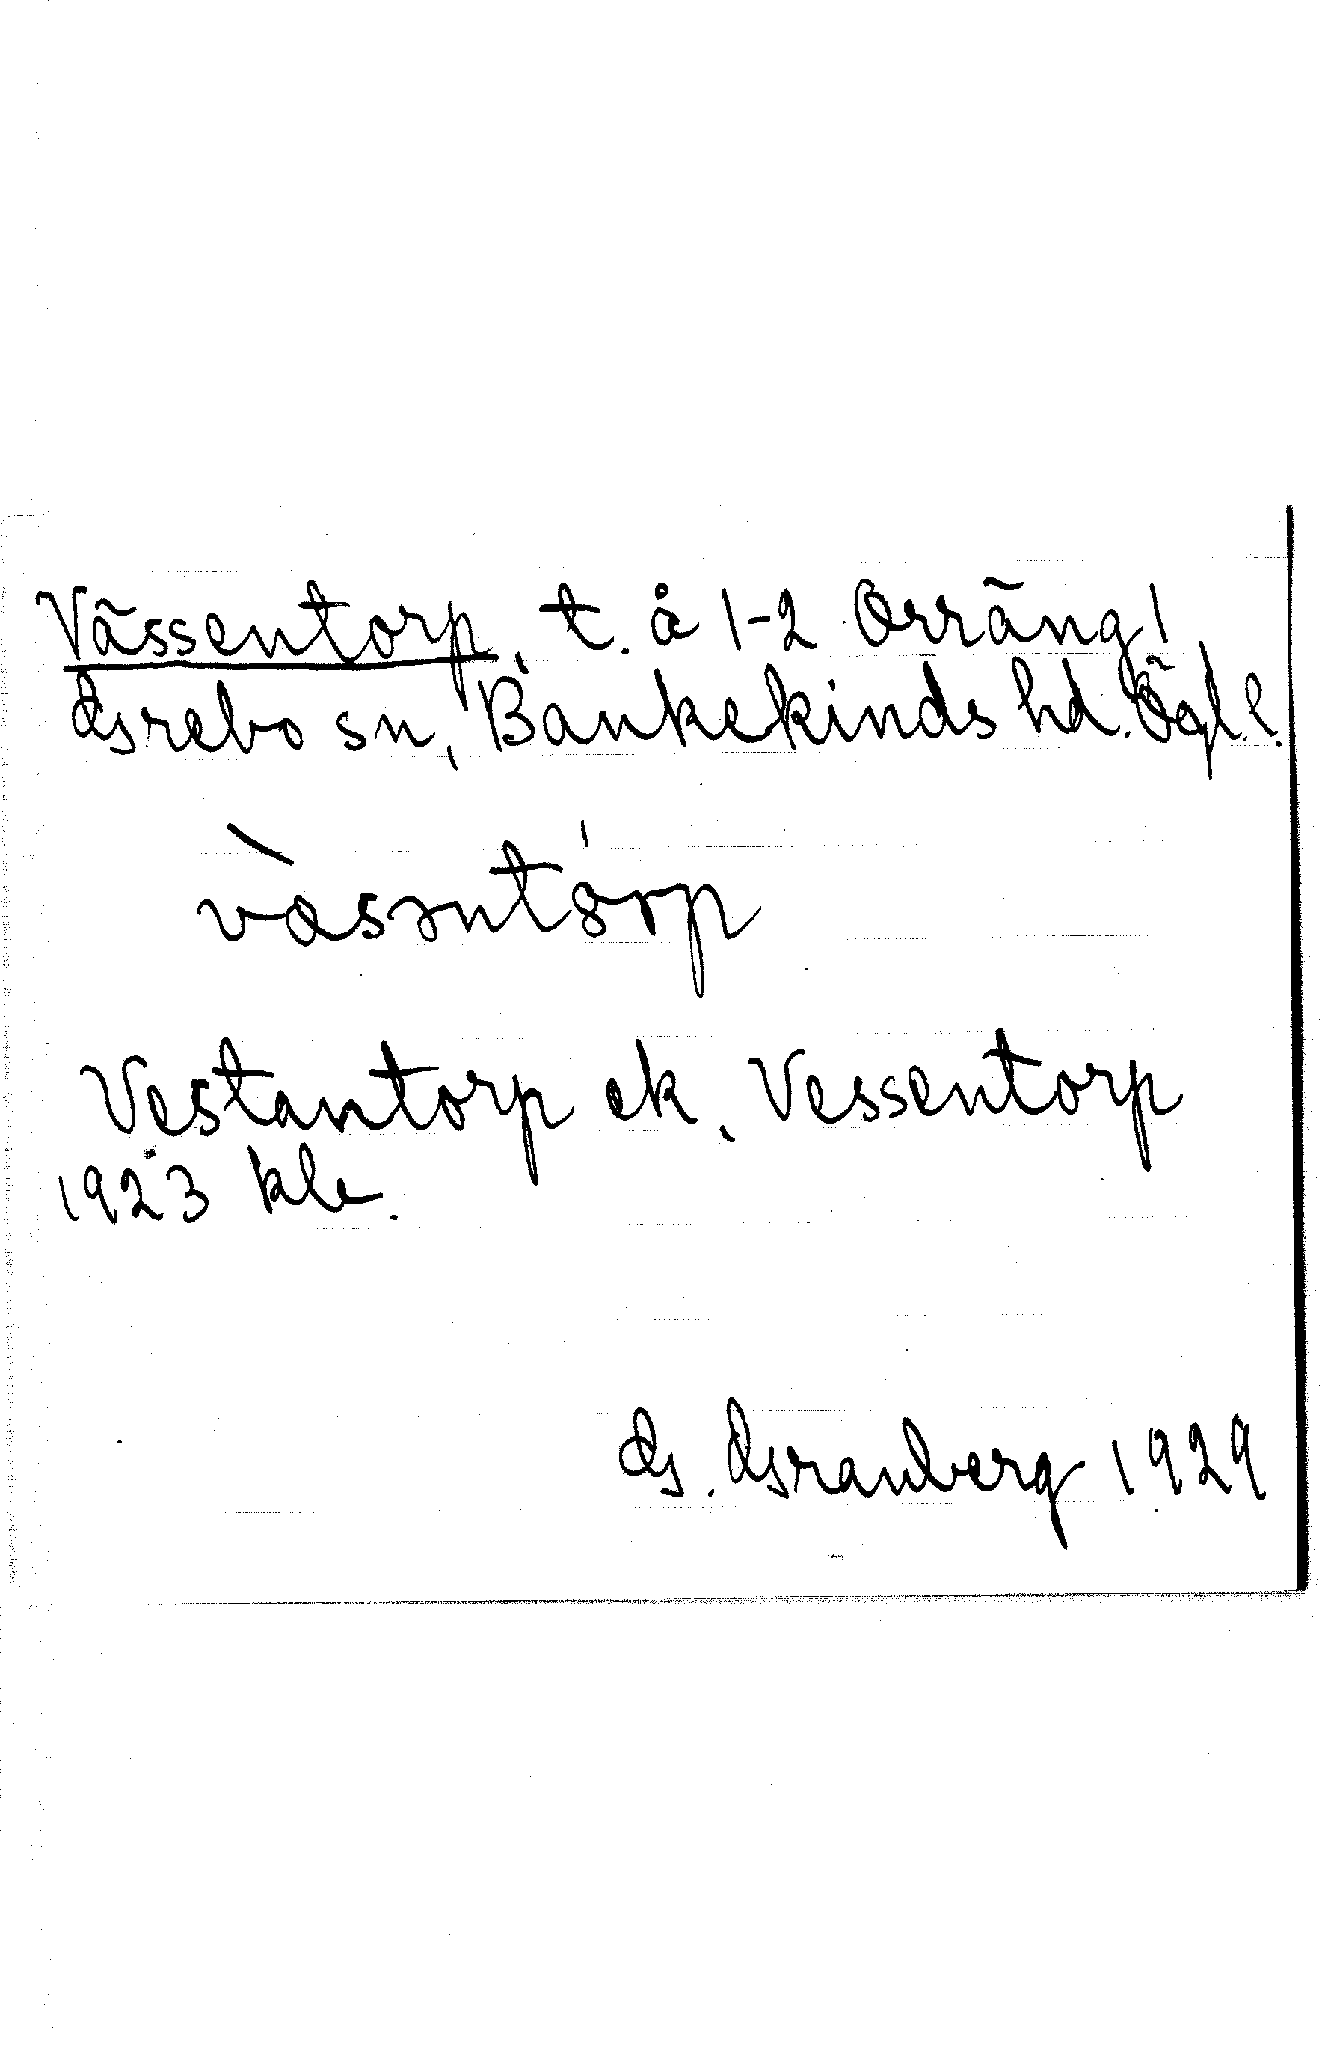 Vässentorp, t. å 1-2 Orräng,
Grebo sn, Bankekinds hd. Ögl. l.
vàsəntórp
Vestantorp ek, Vessentorp
1923 kle.
G. Granberg 1929